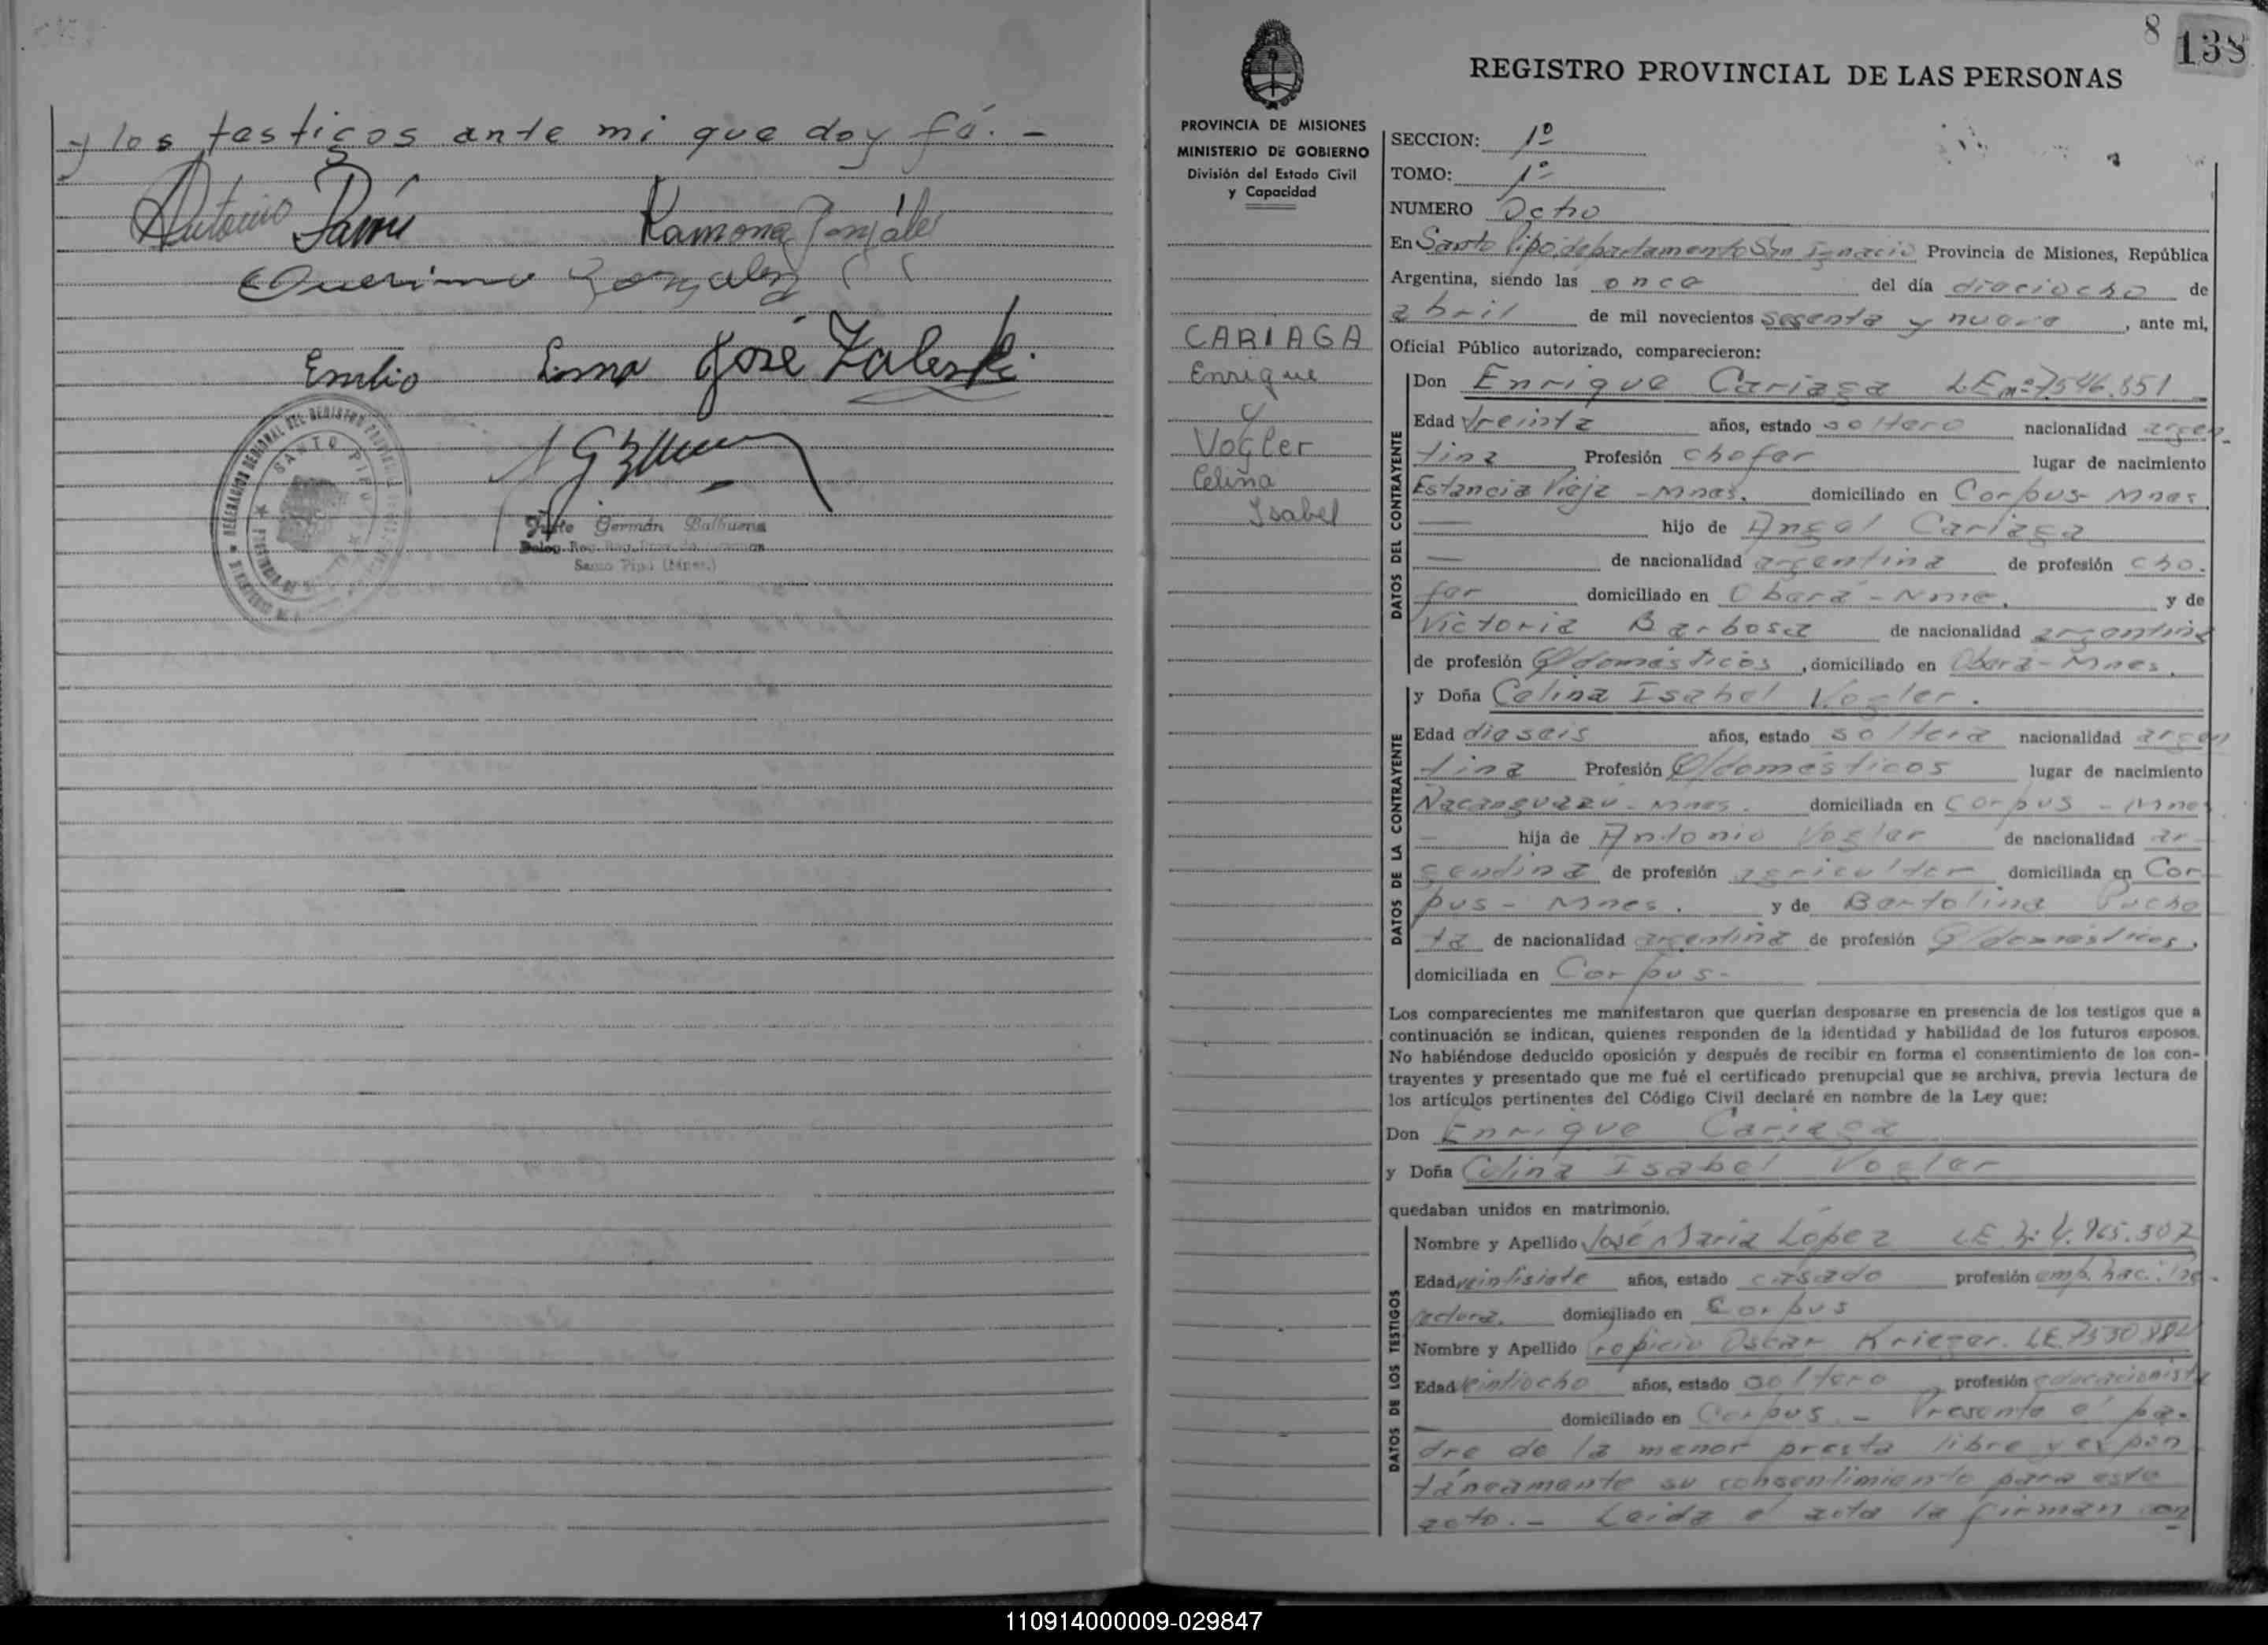 y los testigos ante mi que doy fé. -
Antonio
Ramona González
Querimo Gonzalez
Emilio Lima José Zaleski
SANTO PIPO
Justo Germán Balbuena
Santo Pipó (Mnes.)
8 138
REGISTRO PROVINCIAL DE LAS PERSONAS
PROVINCIA DE MISIONES
MINISTERIO DE GOBIERNO
División del Estado Civil
y Capacidad
CARIAGA
Enrique
y
Vogler
Celina
Isabel
SECCION: 1º
TOMO: 1º
NUMERO Ocho
En Santo Pipó departamento San Ignacio Provincia de Misiones, República
Argentina, siendo las once del día dieciocho de
abril de mil novecientos sesenta y nueve, ante mi,
Oficial Público autorizado, comparecieron:
DATOS DEL CONTRAYENTE
Don Enrique Cariaga LE nº 7.546.851
Edad treinta años, estado soltero nacionalidad argen
tina Profesión chofer lugar de nacimiento
Estancia Vieja - Mnes. domiciliado en Corpus - Mnes
hijo de Angel Cariaga
de nacionalidad argentina de profesión cho-
fer domiciliado en Oberá - Mnes. y de
Victoria Barbosa de nacionalidad argentina
de profesión Q/domésticos, domiciliado en Oberá - Mnes.
DATOS DE LA CONTRAYENTE
y Doña Celina Isabel Vogler.
Edad dieseis años, estado soltera nacionalidad argen
tina Profesión Q/domésticos lugar de nacimiento
Ñacanguazú - Mnes. domiciliada en Corpus - Mnes
hija de Antonio Vogler de nacionalidad ar
gentina de profesión agricultor domiciliada en Cor
pus - Mnes. y de Bartolina Pucho
ta de nacionalidad argentina de profesión Q/domésticos,
domiciliada en Corpus -
Los comparecientes me manifestaron que querían desposarse en presencia de los testigos que a
continuación se indican, quienes responden de la identidad y habilidad de los futuros esposos.
No habiéndose deducido oposición y después de recibir en forma el consentimiento de los con-
trayentes y presentado que me fué el certificado prenupcial que se archiva, previa lectura de
los artículos pertinentes del Código Civil declaré en nombre de la Ley que:
Don Enrique Cariaga
y Doña Celina Isabel Vogler
quedaban unidos en matrimonio.
DATOS DE LOS TESTIGOS
Nombre y Apellido José María López LE
Edad veintisiete años, estado casado profesión emp.
domiciliado en Corpus
Nombre y Apellido Oscar Krieger. LE.
Edad veintiocho años, estado soltero profesión educacionista
domiciliado en Corpus - Presente el pa-
dre de la menor presta libre y expon
táneamente su consentimiento para este
acto. - Leida el acta la firman con
110914000009-029847